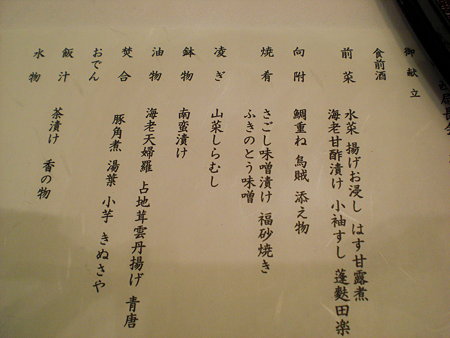 御献立
食前酒
前菜 水菜 揚げお浸し はす甘露煮
海老甘酢漬け 小袖すし 蓬麩田楽
向附 鯛重ね 烏賊 添え物
焼肴 さごし味噌漬け 福砂焼き
ふきのとう味噌
凌ぎ 山菜しらむし
鉢物 南蛮漬け
油物 海老天婦羅 占地茸雲丹揚げ 青唐
焚合 豚角煮 湯葉 小芋 きぬさや
おでん
飯汁 茶漬け 香の物
水物